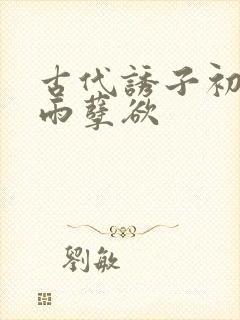 古代誘子初
雨孽欲
劉敏